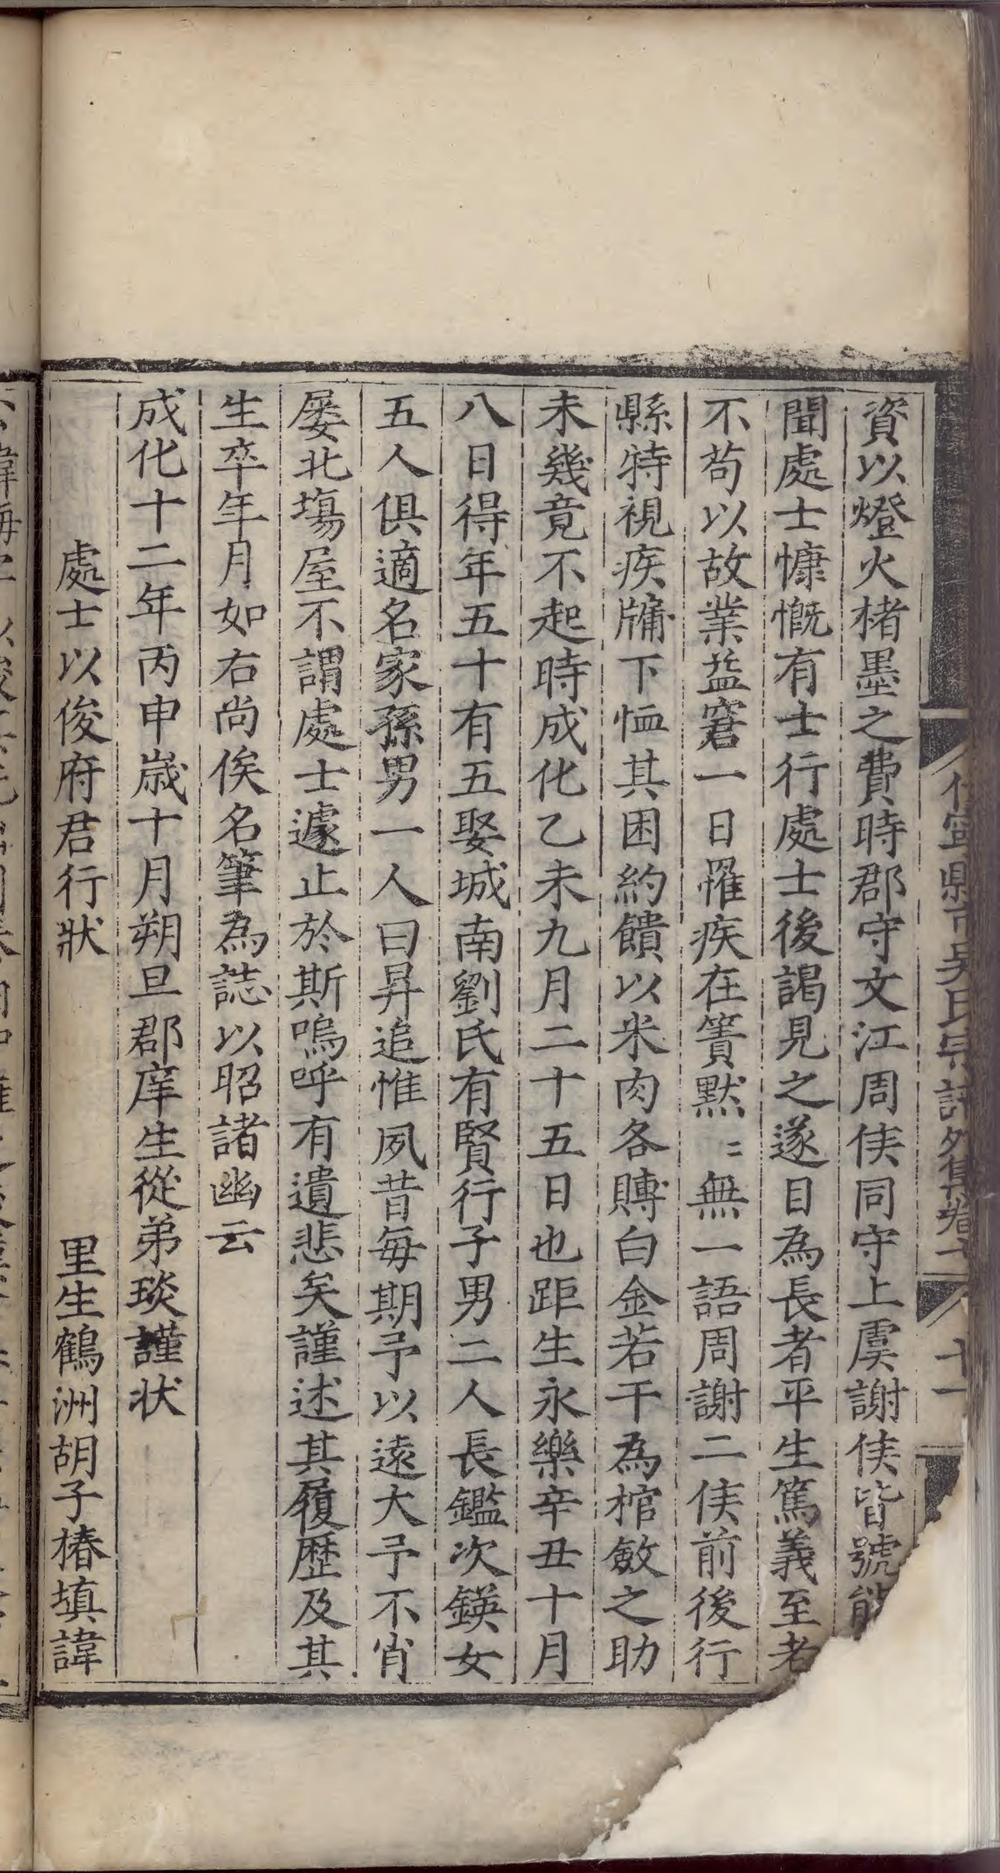 資以燈火楮墨之費時郡守文江周侯同守上虞謝侯皆號能
聞處士慷慨有士行處士後謁見之遂目為長者平生篤義至老
不苟以故業益窘一日罹疾在簀默〻無一語周謝二侯前後行
縣特視疾牖下恤其困約饋以米肉各賻白金若干為棺斂之助
未幾竟不起時成化乙未九月二十五日也距生永樂辛丑十月
八日得年五十有五娶城南劉氏有賢行子男二人長鑑次鍈女
五人俱適名家孫男一人曰昇追惟夙昔每期予以遠大予不肖
屡北塲屋不謂處士遽止於斯嗚呼有遺悲矣謹述其履歴及其
生卒年月如右尚俟名筆為誌以昭諸幽云
成化十二年丙申嵗十月朔旦郡庠生從弟琰謹状
處士以俊府君行狀 里生鶴洲胡子椿填諱
休寧縣市吳氏宗譜外集卷 十一